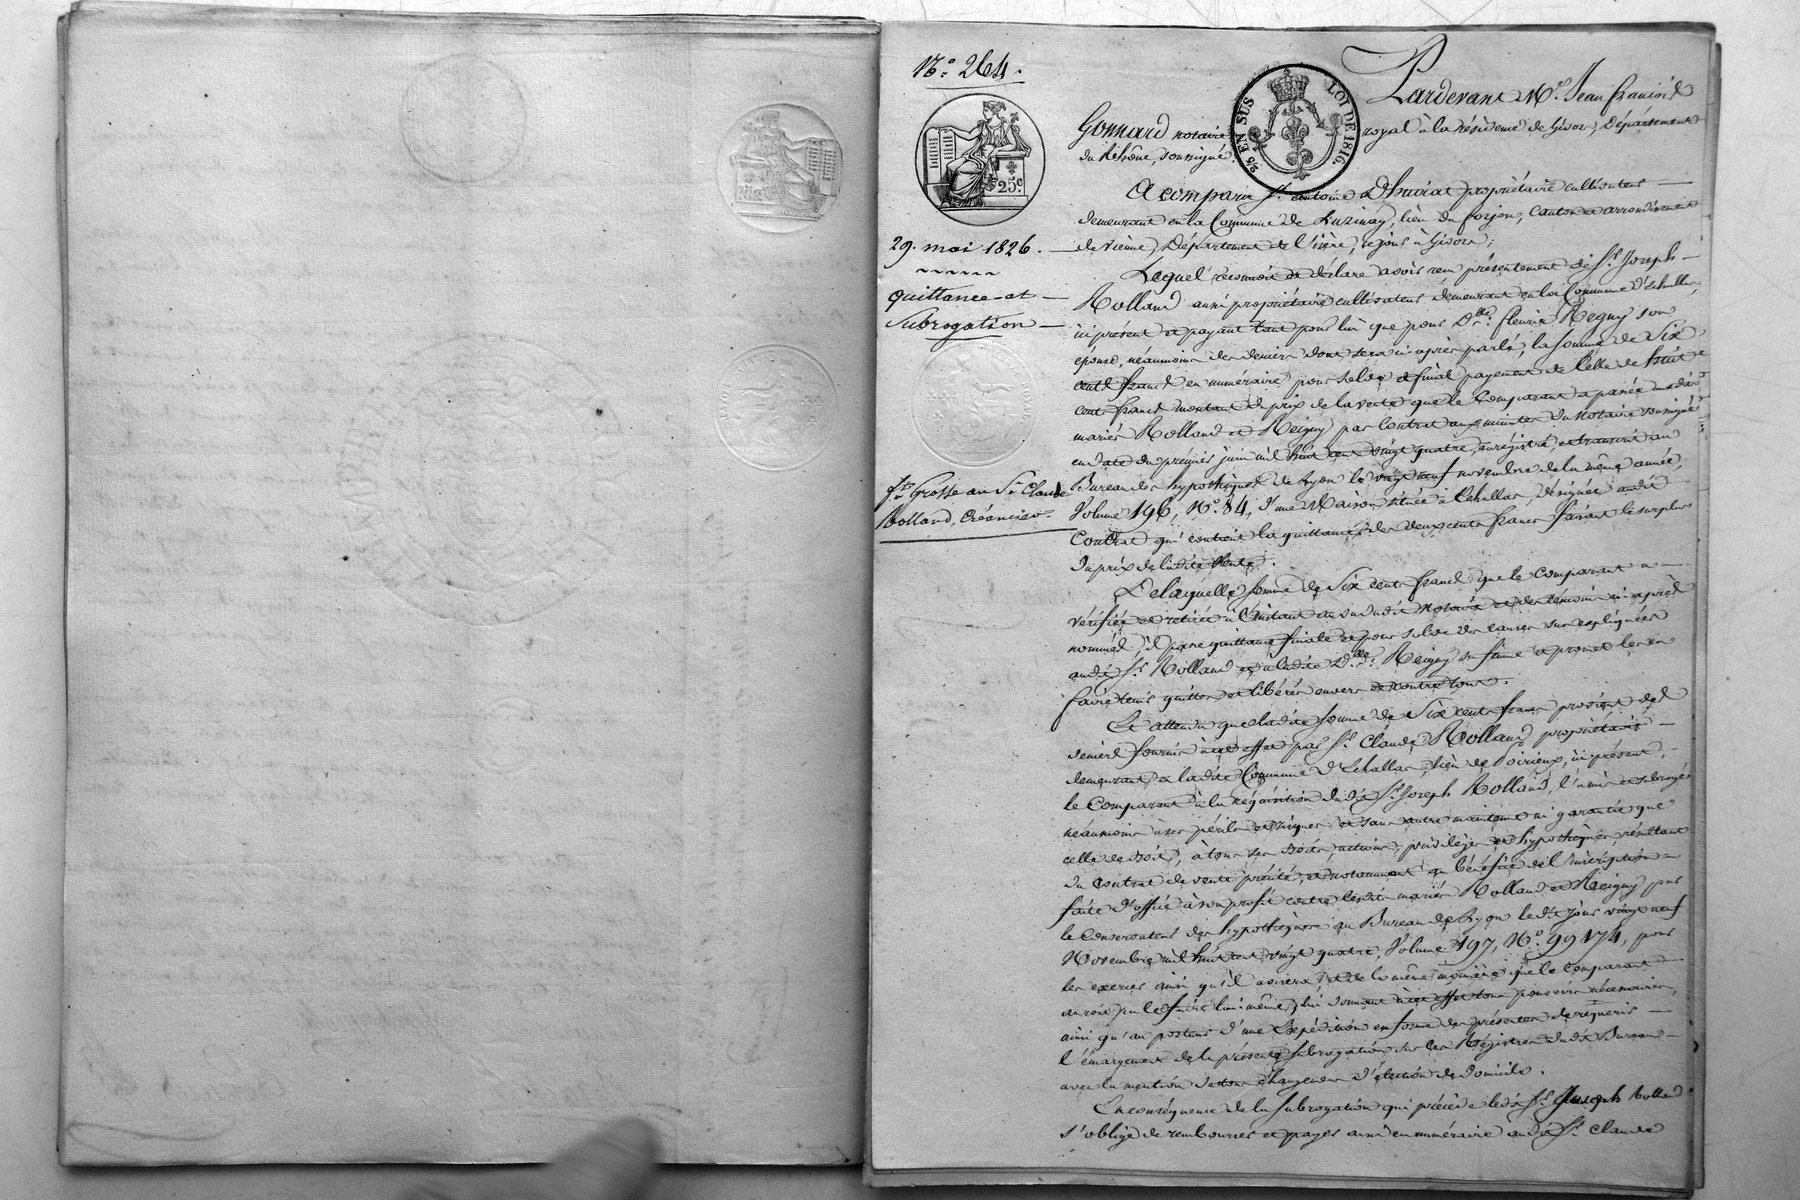 N.° 264.
25.c
2/5 EN SUS LOI DE 1816.
29. mai 1826.
quittance et
Subrogation
f.te Grosse au S.r Claude
Rolland, Créancier
Pardevant M.e Jean françois
Gonnard notaire royal à la résidence de Givors, Département
du Rhône, soussigné
A comparu S.r antoine propriétaire cultivateur
demeurant en la Commune de Luzinay, lieu du forjon, Canton et arrondissement
de vienne, Département de l'isère, ce jour à Givors;
Lequel reconnoit et déclare avoir reçu présentement de S.r Joseph
Rolland aussi propriétaire cultivateur demeurant en la Commune d'Echallas,
ici présent et payant tant pour lui que pour D.lle fleurie Regny son
épouse, néaumoins des deniers dont sera ci-après parlé, la somme de Six
cent francs en numéraire pour solde et final payement de Celle de huit
cent francs montant du prix de la vente que le Comparant a passée auxdits
mariés Rolland et Reigny par Contrat aux minutes du Notaire soussigné
en date du premier juin mil huit cent vingt quatre, enrégistré, et transcrit au
Bureau des hypothèques de Lyon le vingt neuf novembre de la même année,
Volume 196, N.° 84, d'une Maison située à Echallas, désignée audit
Contrat qui contient la quittance des deux cents francs faisant le surplus
du prix de ladite vente.
De laquelle somme de Six cent francs que le comparant a
vérifiée et retirée à l'instant au vu dudit Notaire et des témoins ci-après
nommés, il passe quittance finale et pour solde des causes sus expliquées
audit S.r Rolland et à ladite D.lle Reigny sa femme et promet les en
faire tenir quittes et libérés envers et contre tous.
Et attendu que ladite somme de Six cents francs provient des
deniers fournis à cet effet par S.r Claude Rolland propriétaire
demeurant en ladite Commune d'Echallas, lieu de Poirieux, ici présent,
le Comparant à la réquisition dudit S.r Joseph Rolland, l'a mis et subrogé
néaumoins à ses périls et risques et sans autre maintenue ni garantie que
celle de droit, à tous ses droits, actions, privilèges et hypothèques, résultant
du contrat de vente précité, et notamment au bénéfice de l'inscription
faite d'office à son profit contre lesdits mariés Rolland et Reigny par
le Conservateur des hypothèques au Bureau de Lyon ledit jour vingt neuf
Novembre mil huit cent vingt quatre, Volume 197, N.° 99174, pour
les exercer ainsi qu'il avisera, et de la même manière que le comparant
auroit pu le faire lui même, lui donnant à cet effet tous pouvoirs nécessaires,
ainsi qu'au porteur d'une Expédition en forme des présentes de réquérir
l'émargement de la présente subrogation sur les Régistres dudit Bureau
avec la mention de tous changement d'élection de domicile.
En conséquence de la subrogation qui précède ledit S.r Joseph Rolland
s'oblige de rembourser et payer aussi en numéraire audit S.r Claude